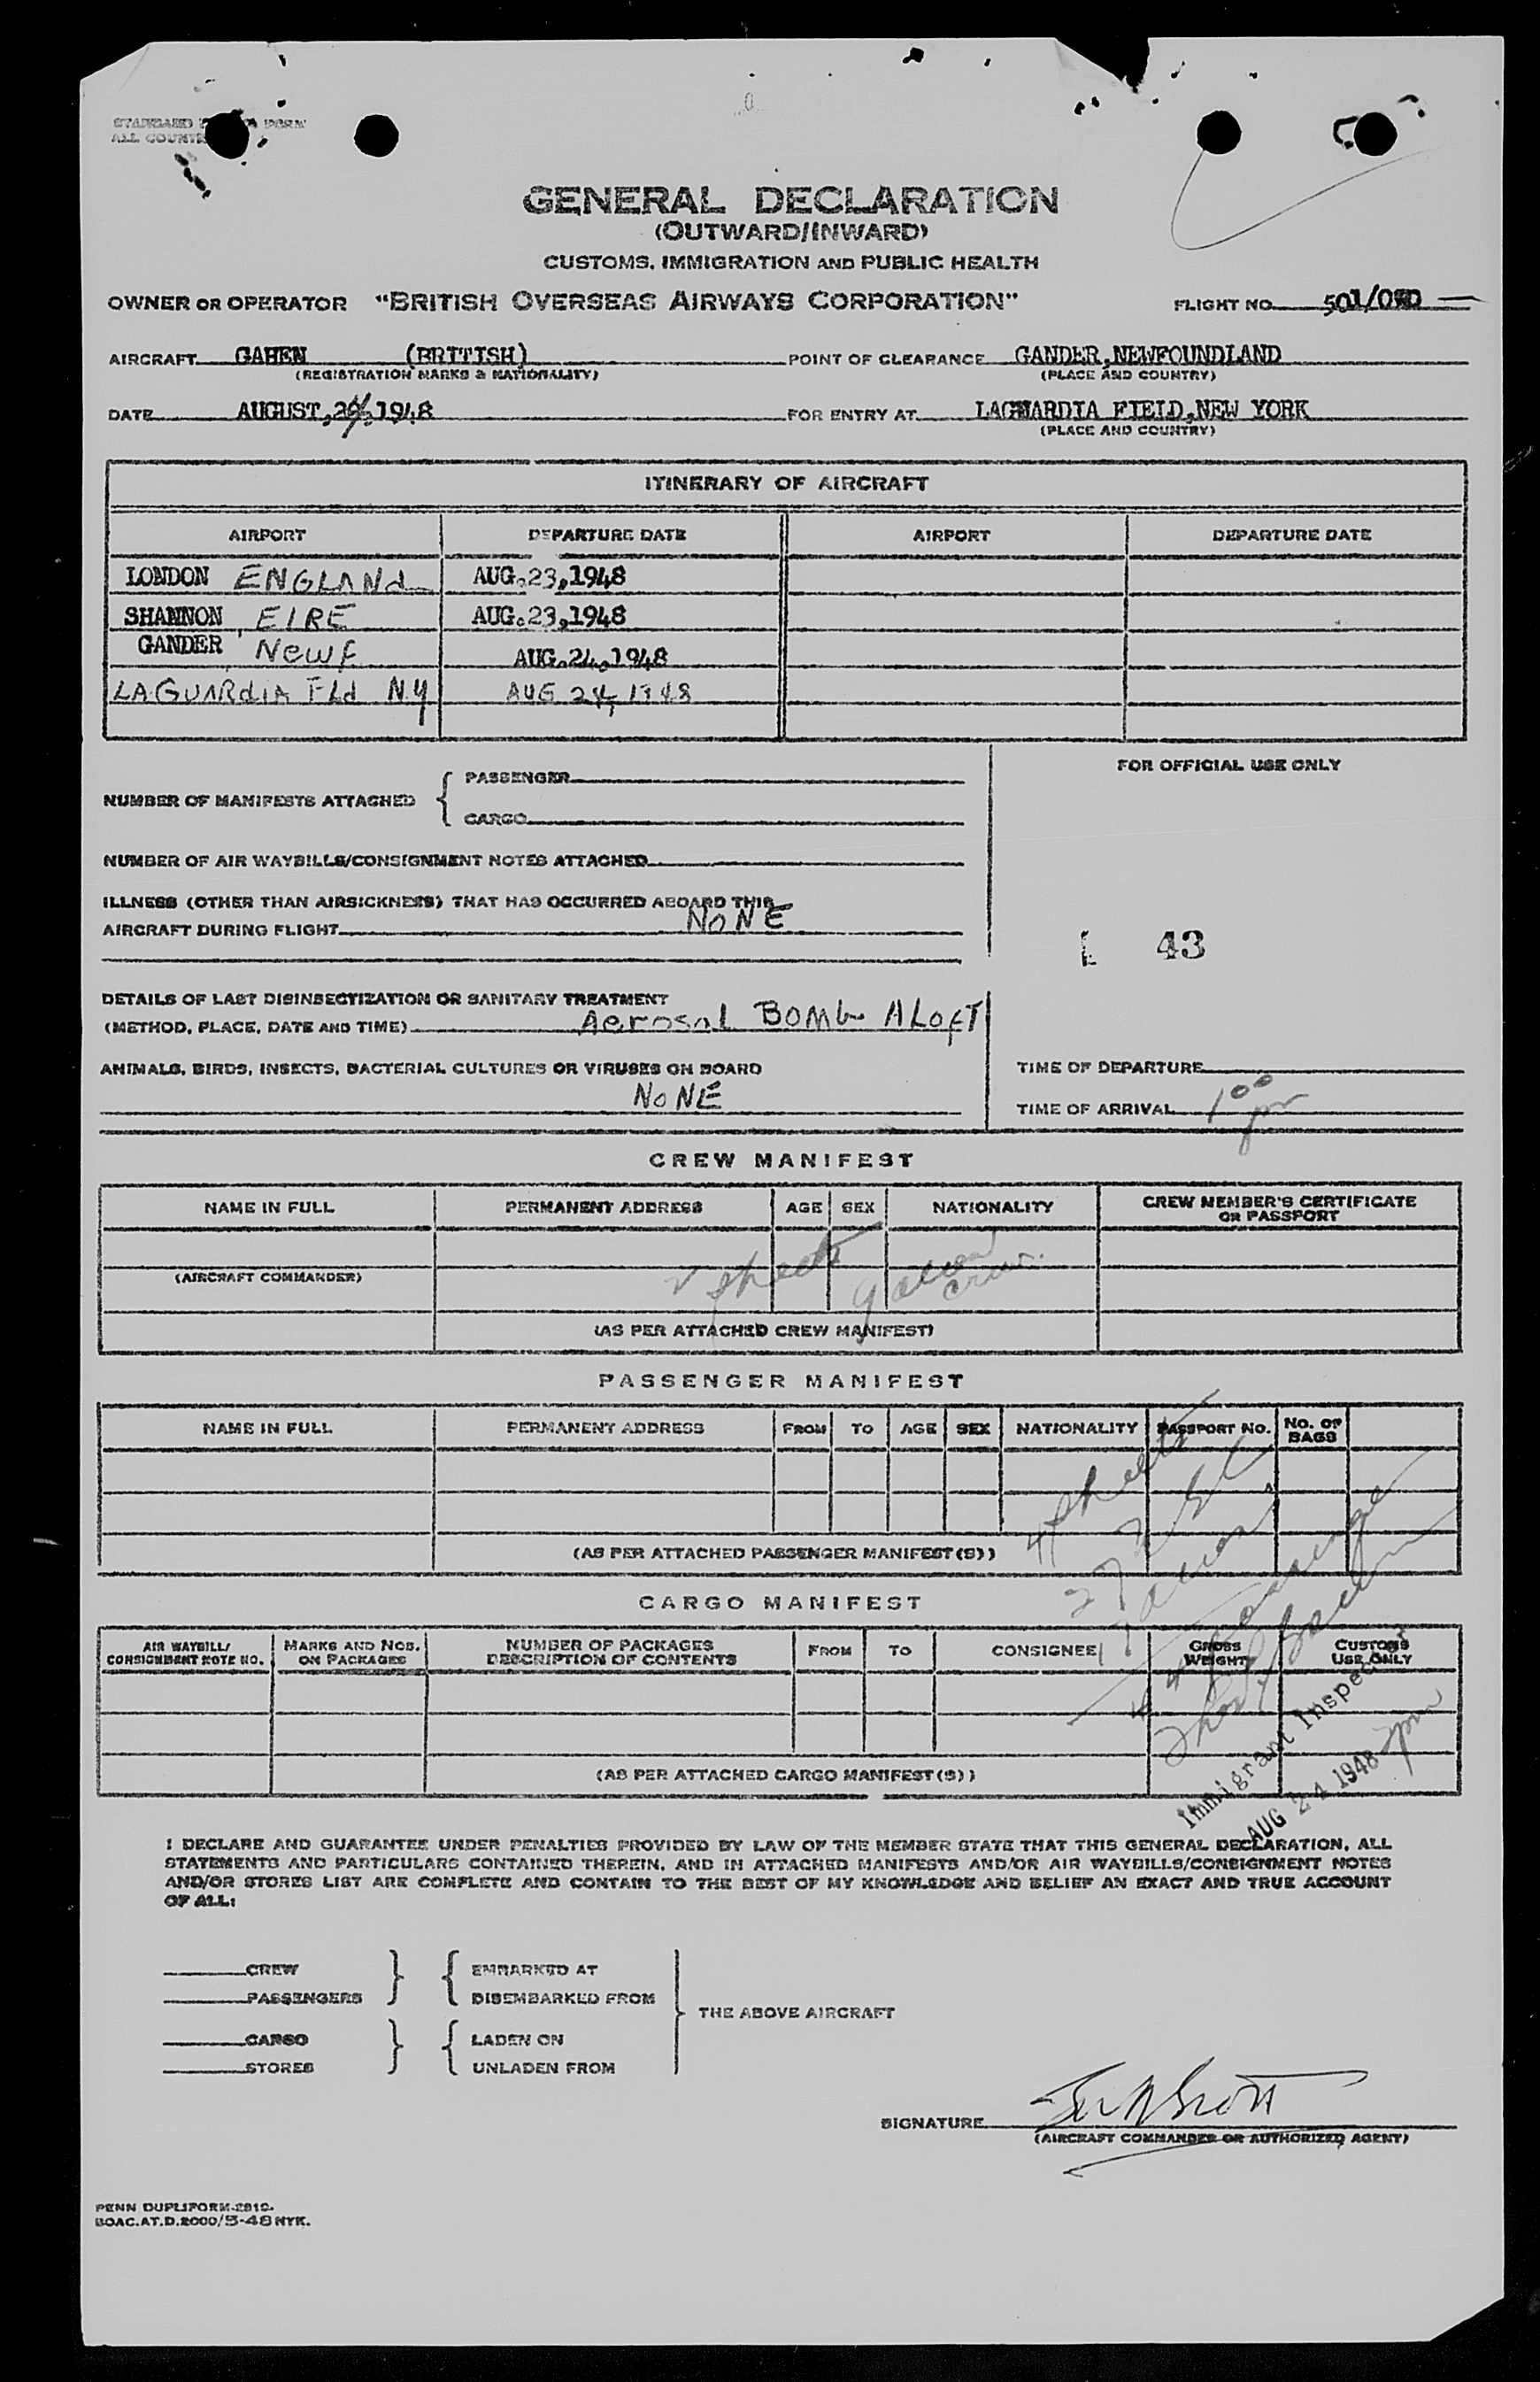 STANDARD FORM
ALL COUNTR
GENERAL DECLARATION
(OUTWARD/INWARD)
CUSTOMS, IMMIGRATION AND PUBLIC HEALTH
OWNER OR OPERATOR "BRITISH OVERSEAS AIRWAYS CORPORATION" FLIGHT NO. 501/
AIRCRAFT GAHEN (BRITISH) POINT OF CLEARANCE GANDER, NEWFOUNDLAND
(REGISTRATION MARKS & NATIONALITY) (PLACE AND COUNTRY)
DATE AUGUST, 24, 1948 FOR ENTRY AT LAGUARDIA FIELD, NEW YORK
(PLACE AND COUNTRY)
ITINERARY OF AIRCRAFT
AIRPORT DEPARTURE DATE AIRPORT DEPARTURE DATE
LONDON ENGLANd AUG.23,1948
SHANNON, EIRE AUG.23,1948
GANDER, Newf AUG.24,1948
LAGUARdiA FLd N.Y AUG 24, 1948
NUMBER OF MANIFESTS ATTACHED { PASSENGER
CARGO
FOR OFFICIAL USE ONLY
NUMBER OF AIR WAYBILLS/CONSIGNMENT NOTES ATTACHED
ILLNESS (OTHER THAN AIRSICKNESS) THAT HAS OCCURRED ABOARD THIS
AIRCRAFT DURING FLIGHT NONE
43
DETAILS OF LAST DISINSECTIZATION OR SANITARY TREATMENT
(METHOD, PLACE, DATE AND TIME) Aerosol Bomb ALoFT
ANIMALS, BIRDS, INSECTS, BACTERIAL CULTURES OR VIRUSES ON BOARD
NONE
TIME OF DEPARTURE
TIME OF ARRIVAL 1 00 pm
CREW MANIFEST
NAME IN FULL PERMANENT ADDRESS AGE SEX NATIONALITY CREW MEMBER'S CERTIFICATE OR PASSPORT
2 sheets 9 alien crew.
(AIRCRAFT COMMANDER)
(AS PER ATTACHED CREW MANIFEST)
PASSENGER MANIFEST
NAME IN FULL PERMANENT ADDRESS FROM TO AGE SEX NATIONALITY PASSPORT NO. NO. OF BAGS
4 sheets
(AS PER ATTACHED PASSENGER MANIFEST(S))
CARGO MANIFEST
AIR WAYBILL/ CONSIGNMENT NOTE NO. MARKS AND NOS. ON PACKAGES NUMBER OF PACKAGES DESCRIPTION OF CONTENTS FROM TO CONSIGNEE GROSS WEIGHT CUSTOMS USE ONLY
(AS PER ATTACHED CARGO MANIFEST(S))
Immigrant Inspector
AUG 24 1948 pm
I DECLARE AND GUARANTEE UNDER PENALTIES PROVIDED BY LAW OF THE MEMBER STATE THAT THIS GENERAL DECLARATION, ALL
STATEMENTS AND PARTICULARS CONTAINED THEREIN, AND IN ATTACHED MANIFESTS AND/OR AIR WAYBILLS/CONSIGNMENT NOTES
AND/OR STORES LIST ARE COMPLETE AND CONTAIN TO THE BEST OF MY KNOWLEDGE AND BELIEF AN EXACT AND TRUE ACCOUNT
OF ALL:
CREW } { EMBARKED AT
PASSENGERS DISEMBARKED FROM
THE ABOVE AIRCRAFT
CARGO } { LADEN ON
STORES UNLADEN FROM
SIGNATURE
(AIRCRAFT COMMANDER OR AUTHORIZED AGENT)
PENN DUPLIFORM-2810-
BOAC.AT.D.2000/5-48 NYK.